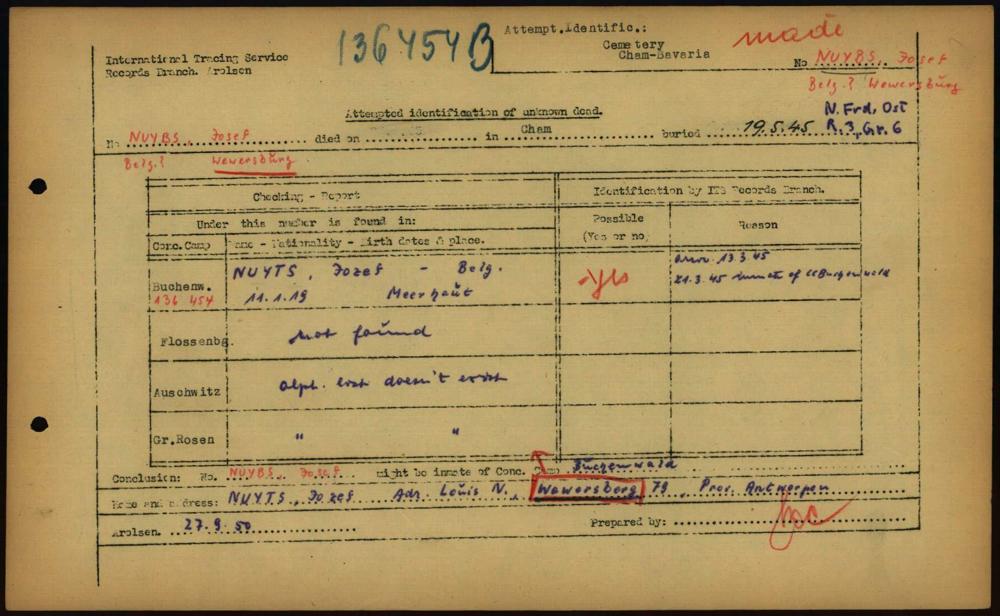 136454B
Attempt.Identific.:
Cemetery
Cham-Bavaria
made
International Tracing Service
Records Branch. Arolsen
No NUYBS, Josef
Belg.? Wewersbürg
Attempted identification of unknown dead.
N. Frd. Ost
R. 3, Gr. 6
No NUYBS, Josef died on in Cham buried 19.5.45
Belg.? Wewersbürg
Checking - Report
Identification by ITS Records Branch.
Under this number is found in:
Possible
(Yes or no)
Reason
Conc.Camp
Name - Nationality - Birth dates & place.
Buchenw.
136 454
NUYTS, Jozef - Belg.
11.1.19 Meerhaüt
Yes
arriv. 13.3.45
21.3.45 inmate of CC Buchenwald
Flossenbg.
not found
Auschwitz
alph. list doesn't exist
Gr.Rosen
" "
Conclusion: No. NUYBS, Josef might be inmate of Conc. Camp Büchenwald
Name and address: NUYTS, Jozef Adr. Loüis N., Wewersberg 79, Prov. Antwerpen
Arolsen. 27.9.50
Prepared by: